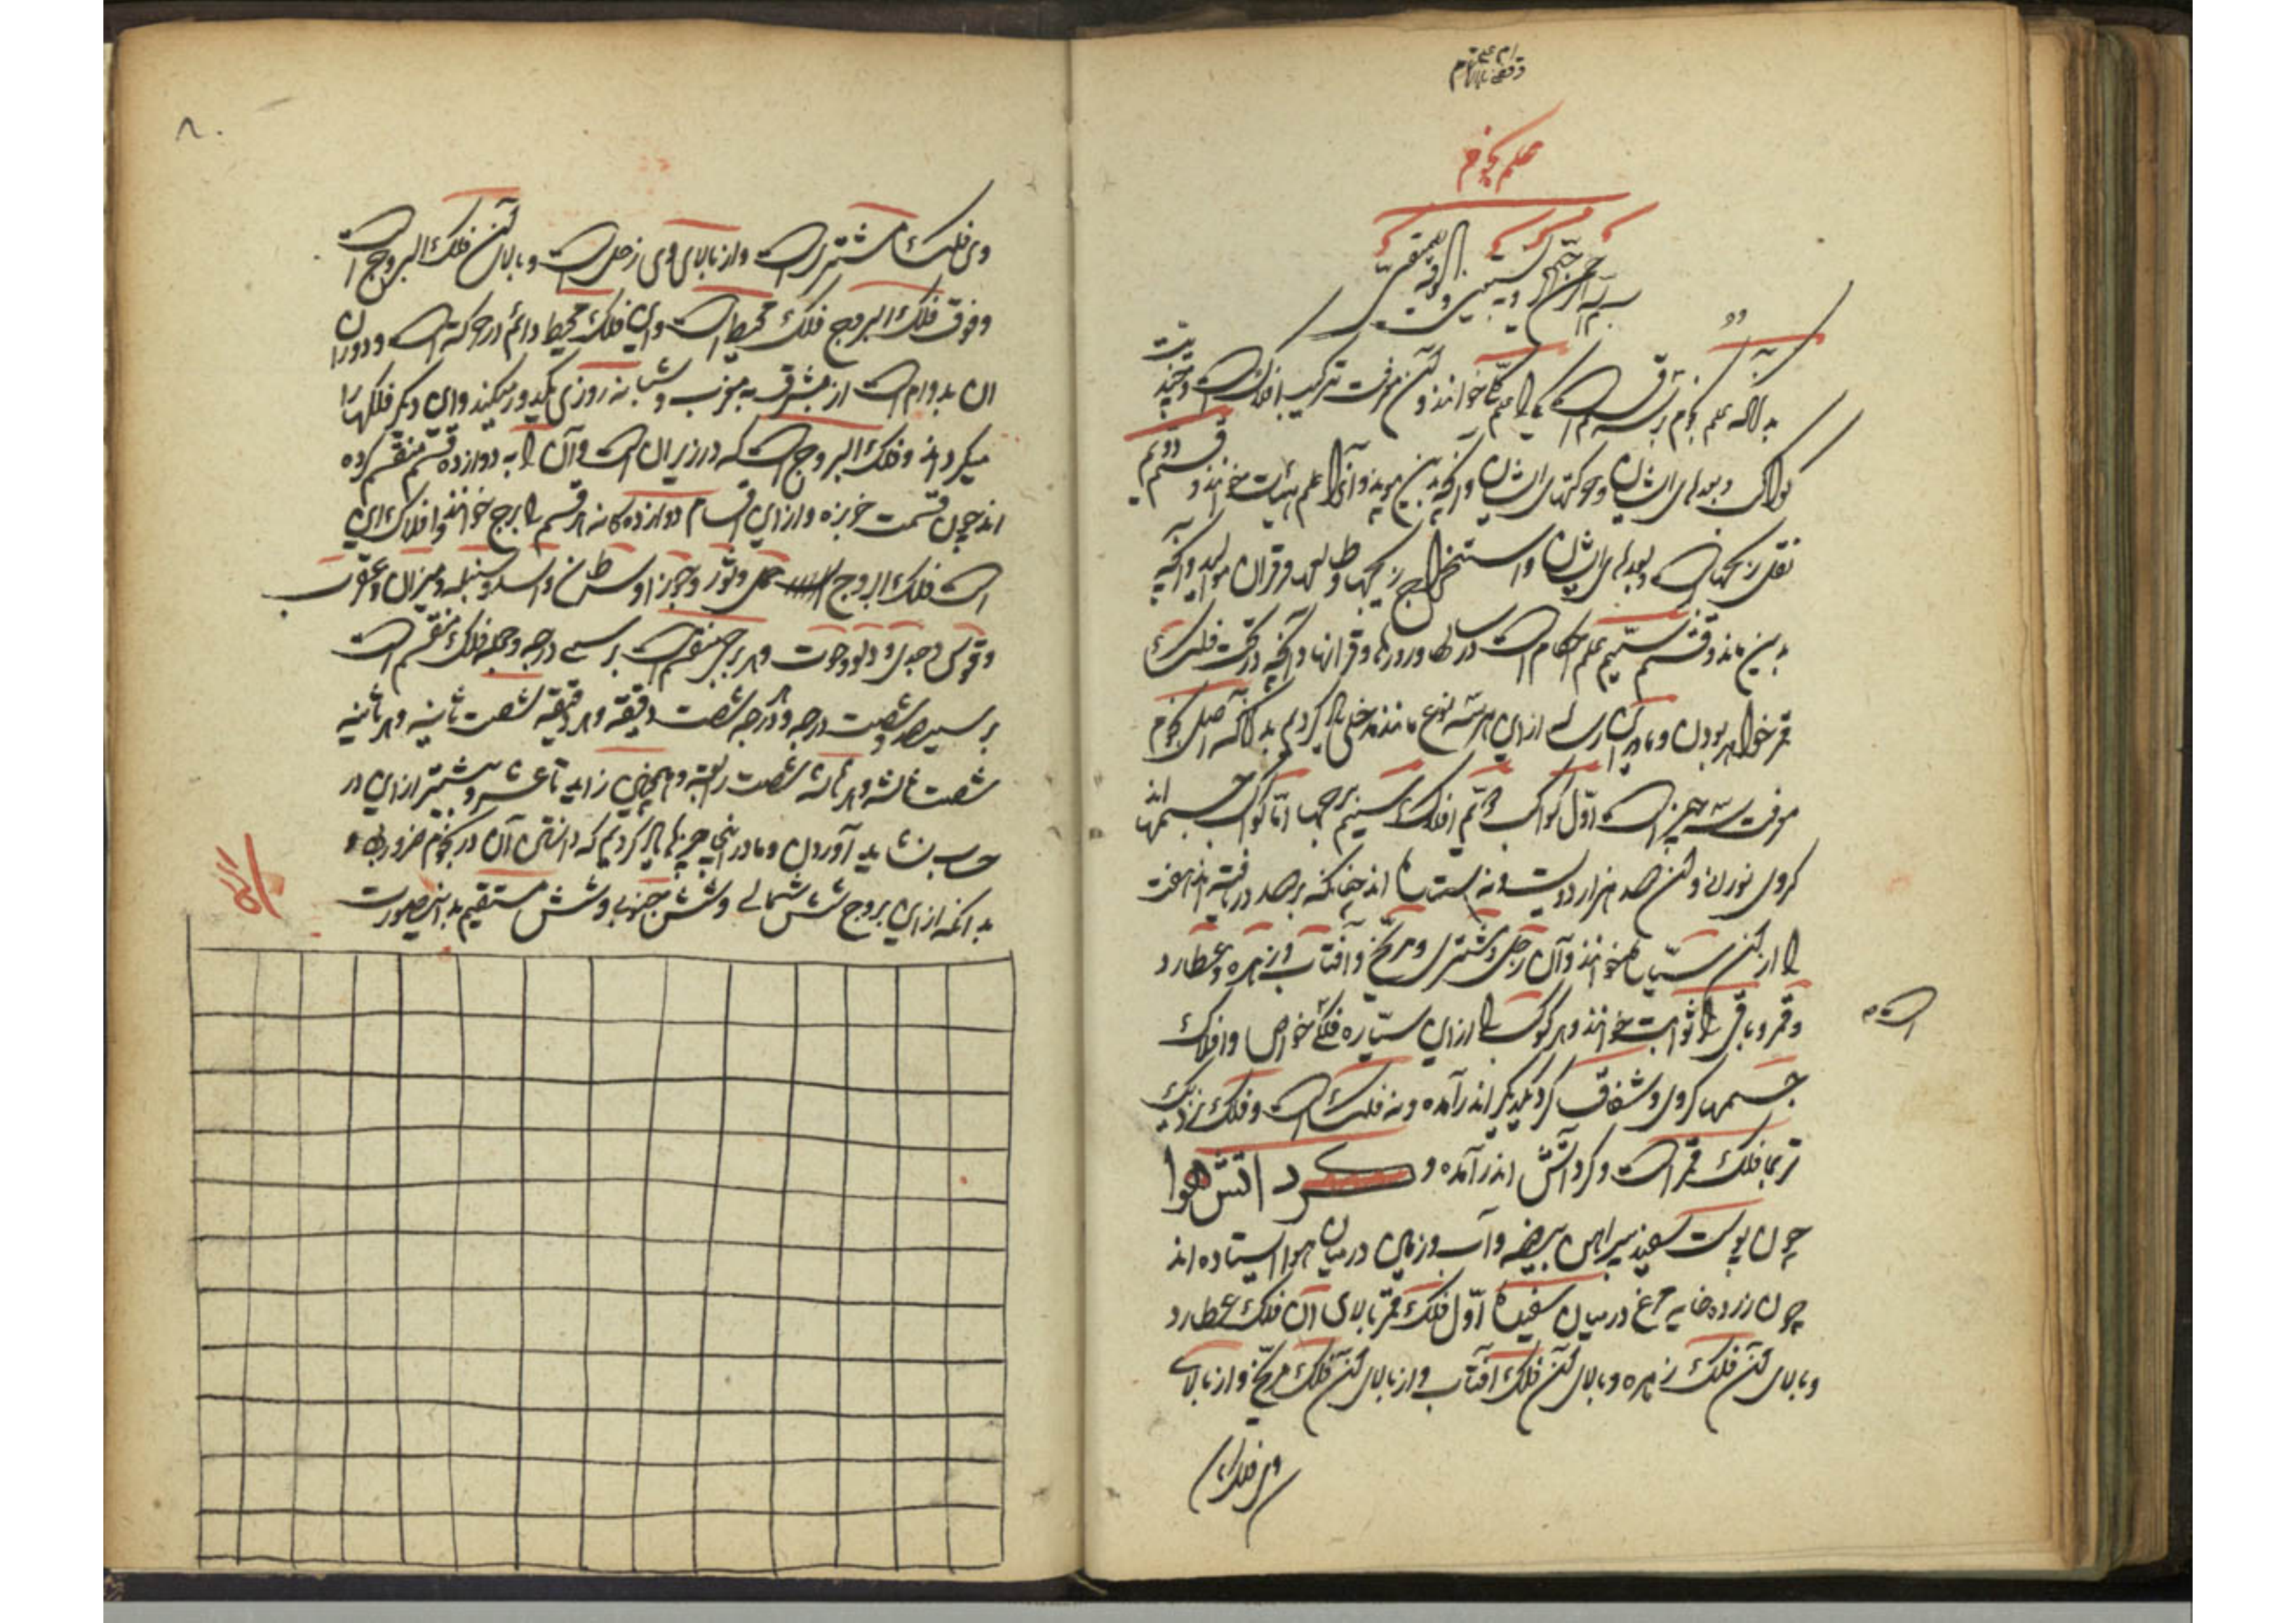 علم نجوم
بسم الله الرحمن الرحیم وبه نستعین
بدانکه علم نجوم بر سه قسم است یکی را علم کلیات خوانند و آن معرفت ترکیب افلاکست و چندیت
کواکب و بعدهای ایشان و حرکتهای ایشان و آنچه بدین ماند و آنرا علم هیئت خوانند و قسم دوئم
بدین ماند و قسم سیّم علم احکام است در طالع و قرانها و آنچه در تحت فلک
قمر خواهد بودن و ما در این رساله ازین هر سه نوع مانند مدخلی یاد کردیم بدانکه اصل نجوم
معرفت سه چیز است اوّل کواکب دوّم افلاک سیّم برجها امّا کواکب جسمها اند
کروی نورانی و آن صد هزار و دویست و نه ستاره اند چنانکه بر صد در رفته اند هفت
را از آن سیّاره خوانند و آن زحل و مشتری و مریّخ و آفتاب و زهره و عطارد
و قمر و باقی را ثوابت خوانند و هر کوکب را ازین سیّاره فلکی خواص و افلاک
است
جسمها کروی و شفاف گرد یکدیگر اندر آمده و نه فلک است و فلک نزدیک
تر بما فلک قمر است و گرد آتش اندر آمده و کرد اتش هوا
چون پوست سفید پیراهن بیضه و آب و زمین در میان هوا ایستاده اند
چون زرده خایه مرغ در میان سفیده اوّل فلک قمر بالای آن فلک عطارد
و بالای آن فلک زهره و بالای آن فلک آفتاب و از بالای آن فلک مریّخ و از بالای
وی فلک
۸۰
وی فلک مشتری است و از بالای وی زحل است و بالای آن فلک البروج است
و فوق فلک البروج فلک محیط است و این فلک محیط دائم در حرکة است و دوران
ان بدوام است از مشرق به مغرب و شبانه روزی یکدور میکند و این دیگر فلکها را
میگرداند و فلک البروج است که در زیر ان است و آن را به دوازده قسم منقسم کرده
اند چون قسمت خربزه و ازین اقسام دوازده کانه هر قسم را برج خوانند و افلاک این
است فلک البروج حمل و ثور و جوزا و سرطان و اسد و سنبله و میزان و عقرب
و قوس و جدی و دلو و حوت و هر برج منقسم است بر سی درجه و جمله فلک منقسم است
بر سیصد و شصت درجه و هر درجه شصت دقیقه و هر دقیقه شصت ثانیه و هر ثانیه
شصت ثالثه و هر ثالثه شصت رابعه و همچنین زاید تا عشر و بیشتر ازین در
حساب نشاید آوردن و ما در اینجا چیزها یاد کردیم که دانستن آن در نجوم ضرور بود
بدانکه ازین بروج شش شمالی و شش جنوبی و شش مستقیم بد این صورت